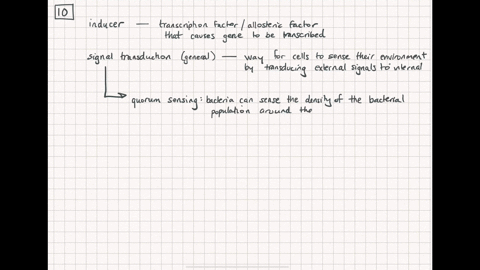 10
inducer — transcription factor / allosteric factor
that causes gene to be transcribed
signal transduction (general) — way for cells to sense their environment
by transducing external signals to internal
quorum sensing: bacteria can sense the density of the bacterial
population around the